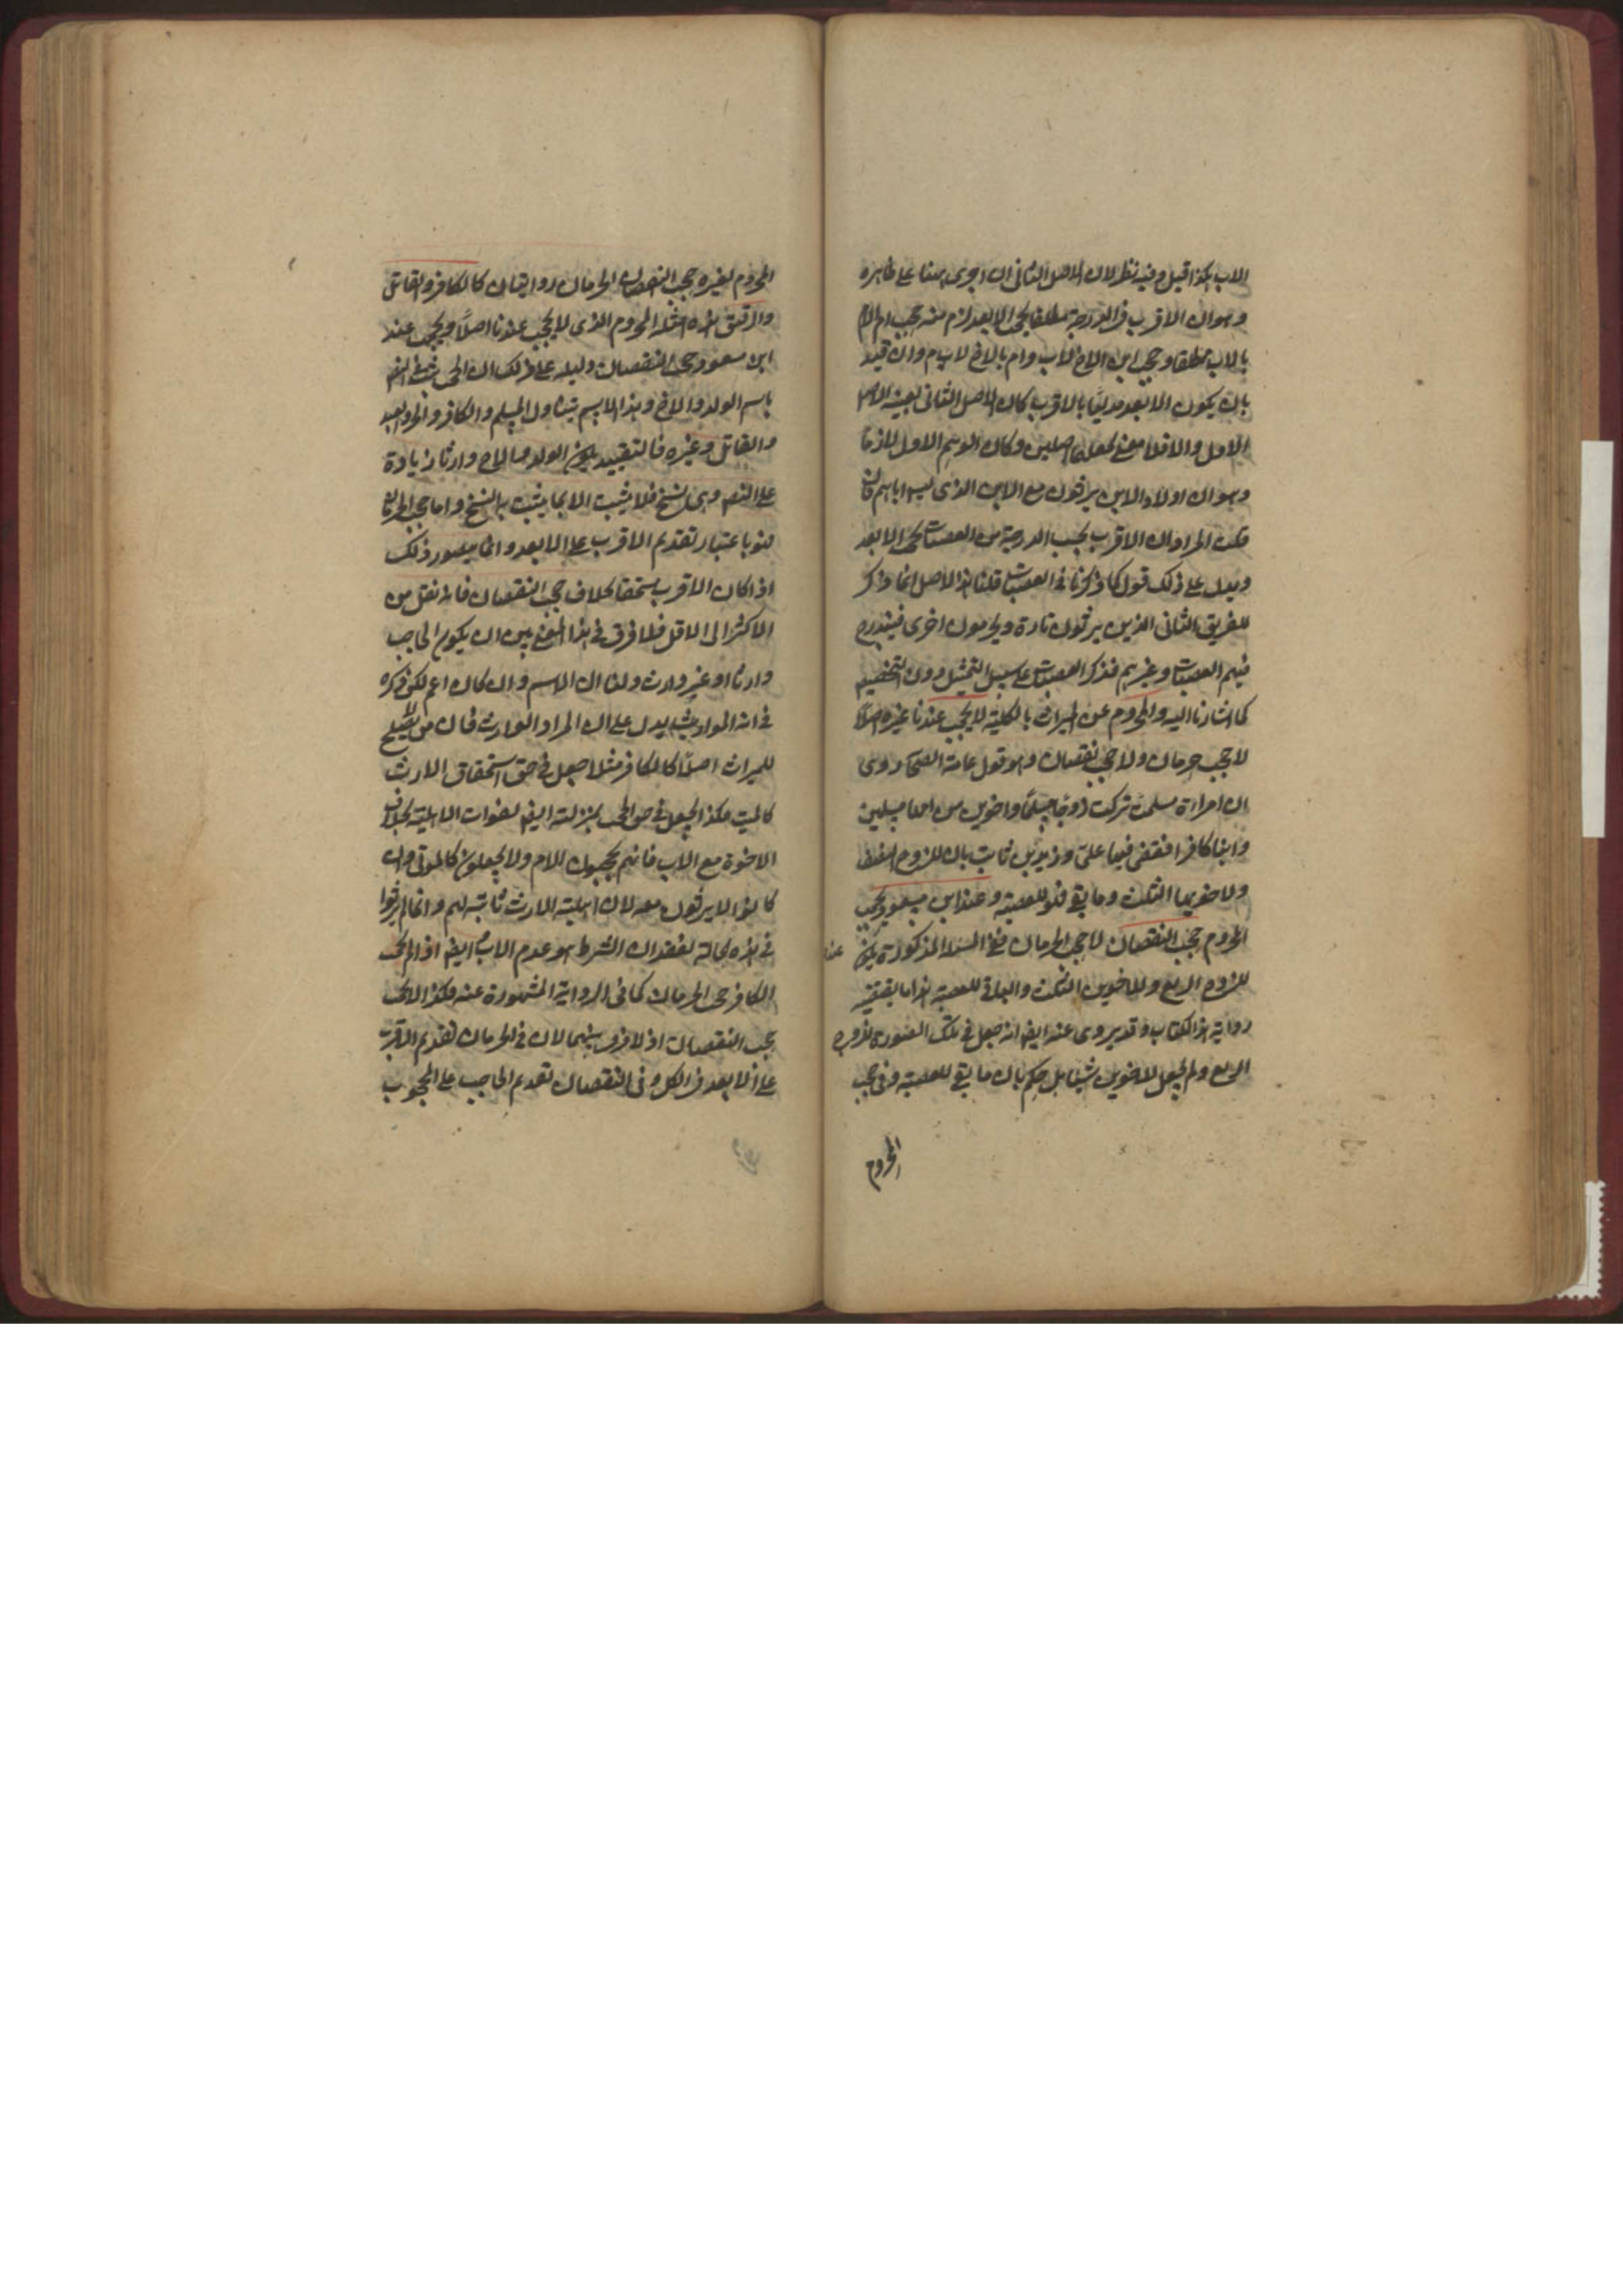 الاب هكذا قيل وفيه نظر لان الاصل الثاني ان اجرى ههنا على ظاهره
وهو ان الاقرب في الدرجة مطلقا يحجب الابعد لزم منه حجب ام الام
بالاب مطلقا وحجب ابن الاخ لاب وام بالاخ لاب وان قيد
بان يكون الابعد مدليا بالاقرب كان الاصل الثاني بعينه الاصل
الاول والا فلا معنى لجعلهما اصلين وكان الوهم الاول لازما
وهو ان اولاد الابن يرثون مع الابن الذي ليس اباهم فان
قلت المراد ان الاقرب بحسب الدرجة من العصبات يحجب الابعد
ويدل على ذلك قوله كما ذكرنا في العصبات قلنا هذا الاصل انما ذكر
للفريق الثاني الذين يرثون تارة ويحرمون اخرى فيندرج
فيهم العصبات وغيرهم فذكر العصبات على سبيل التمثيل دون التخصيص
كما اشارنا اليه والمحروم عن الميراث بالكلية لا يحجب عندنا غيره اصلا
لا حجب حرمان ولا حجب نقصان وهو قول عامة الصحابة روى
ان امراة مسلمة تركت زوجا مسلما واخوين من امها مسلمين
وابنا كافرا فقضى فيها علي وزيد بن ثابت بان للزوج النصف
ولاخويها الثلث وما بقي فهو للعصبة وعند ابن مسعود يحجب
المحروم حجب النقصان لا حجب الحرمان ففي المسئلة المذكورة يكون عنده
للزوج الربع وللاخوين الثلث والباقي للعصبة هذا ما يقتضيه
رواية هذا الكتاب وقد يروى عنه ايضا انه جعل في تلك الصورة للزوج
الربع ولم يجعل للاخوين شيئا بل حكم بان ما بقي للعصبة وفي حجب
المحروم
المحروم لغيره حجب النقصان الحرمان روايتان كالكافر والقاتل
والرقيق هذه امثلة المحروم الذي لا يحجب عندنا اصلا ويحجب عند
ابن مسعود حجب النقصان دليله على ذلك ان الحجب ثبت في النص
باسم الولد والاخ وهذا الاسم يتناول المسلم والكافر والحر والعبد
والقاتل وغيره فالتقييد بكون الولد وارثا زيادة
على النص وهي نسخ فلا يثبت الا بما يثبت به النسخ واما حجب الحرمان
فهو باعتبار تقديم الاقرب على الابعد وانما يتصور ذلك
اذا كان الاقرب مستحقا بخلاف حجب النقصان فانه نقل من
الاكثر الى الاقل فلا فرق في هذا المعنى بين ان يكون الحاجب
وارثا او غير وارث ولنا ان الاسم وان كان اعم لكن ذكره
في اية المواريث يدل على ان المراد الوارث فان من لا يصلح
للميراث اصلا كالكافر مثلا جعل في حق استحقاق الارث
كالميت فكذا يجعل في حق الحجب بمنزلته ايضا لفوات الاهلية بخلاف
الاخوة مع الاب فانهم يحجبون الام ولا يجعلون كالموتى وان
كانوا لا يرثون معه لان اهلية الارث ثابتة لهم وانما لم يرثوا
في هذه الحالة لفقدان الشرط هو عدم الاب ايضا اذا لم يحجب
الكافر حجب الحرمان كما في الرواية المشهورة عنه فكذا لا يحجب
حجب النقصان اذ لا فرق بينهما لان في الحرمان تقديم الاقرب
على الابعد في الكل وفي النقصان تقديم الحاجب على المحجوب